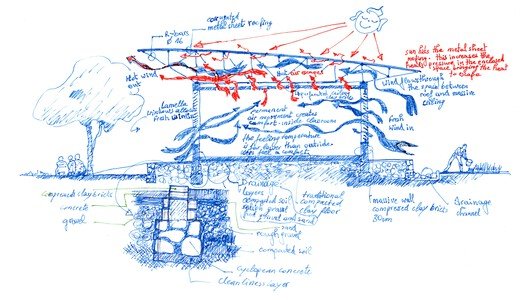 corrugated
metal sheet roofing
Hot wind
out
Hot air escapes
sun hits the metal sheet
roofing. this increases the
pressure in the enclosed
space bringing the heat
to escape
wind flows through
the space between
roof and massive
ceiling
fresh
wind in
Lamella
fresh
permanent
air movement creates
comfort inside classroom
the feeling temperature
is far than outside
compressed clay bricks
concrete
gravel
Drainage
layers
compacted soil
rough gravel
gravel and sand
sand
rough gravel
compacted soil
cyclopean concrete
cleanliness layer
traditional
compacted
clay floor
massive wall
compressed clay bricks
30cm
Drainage
channel